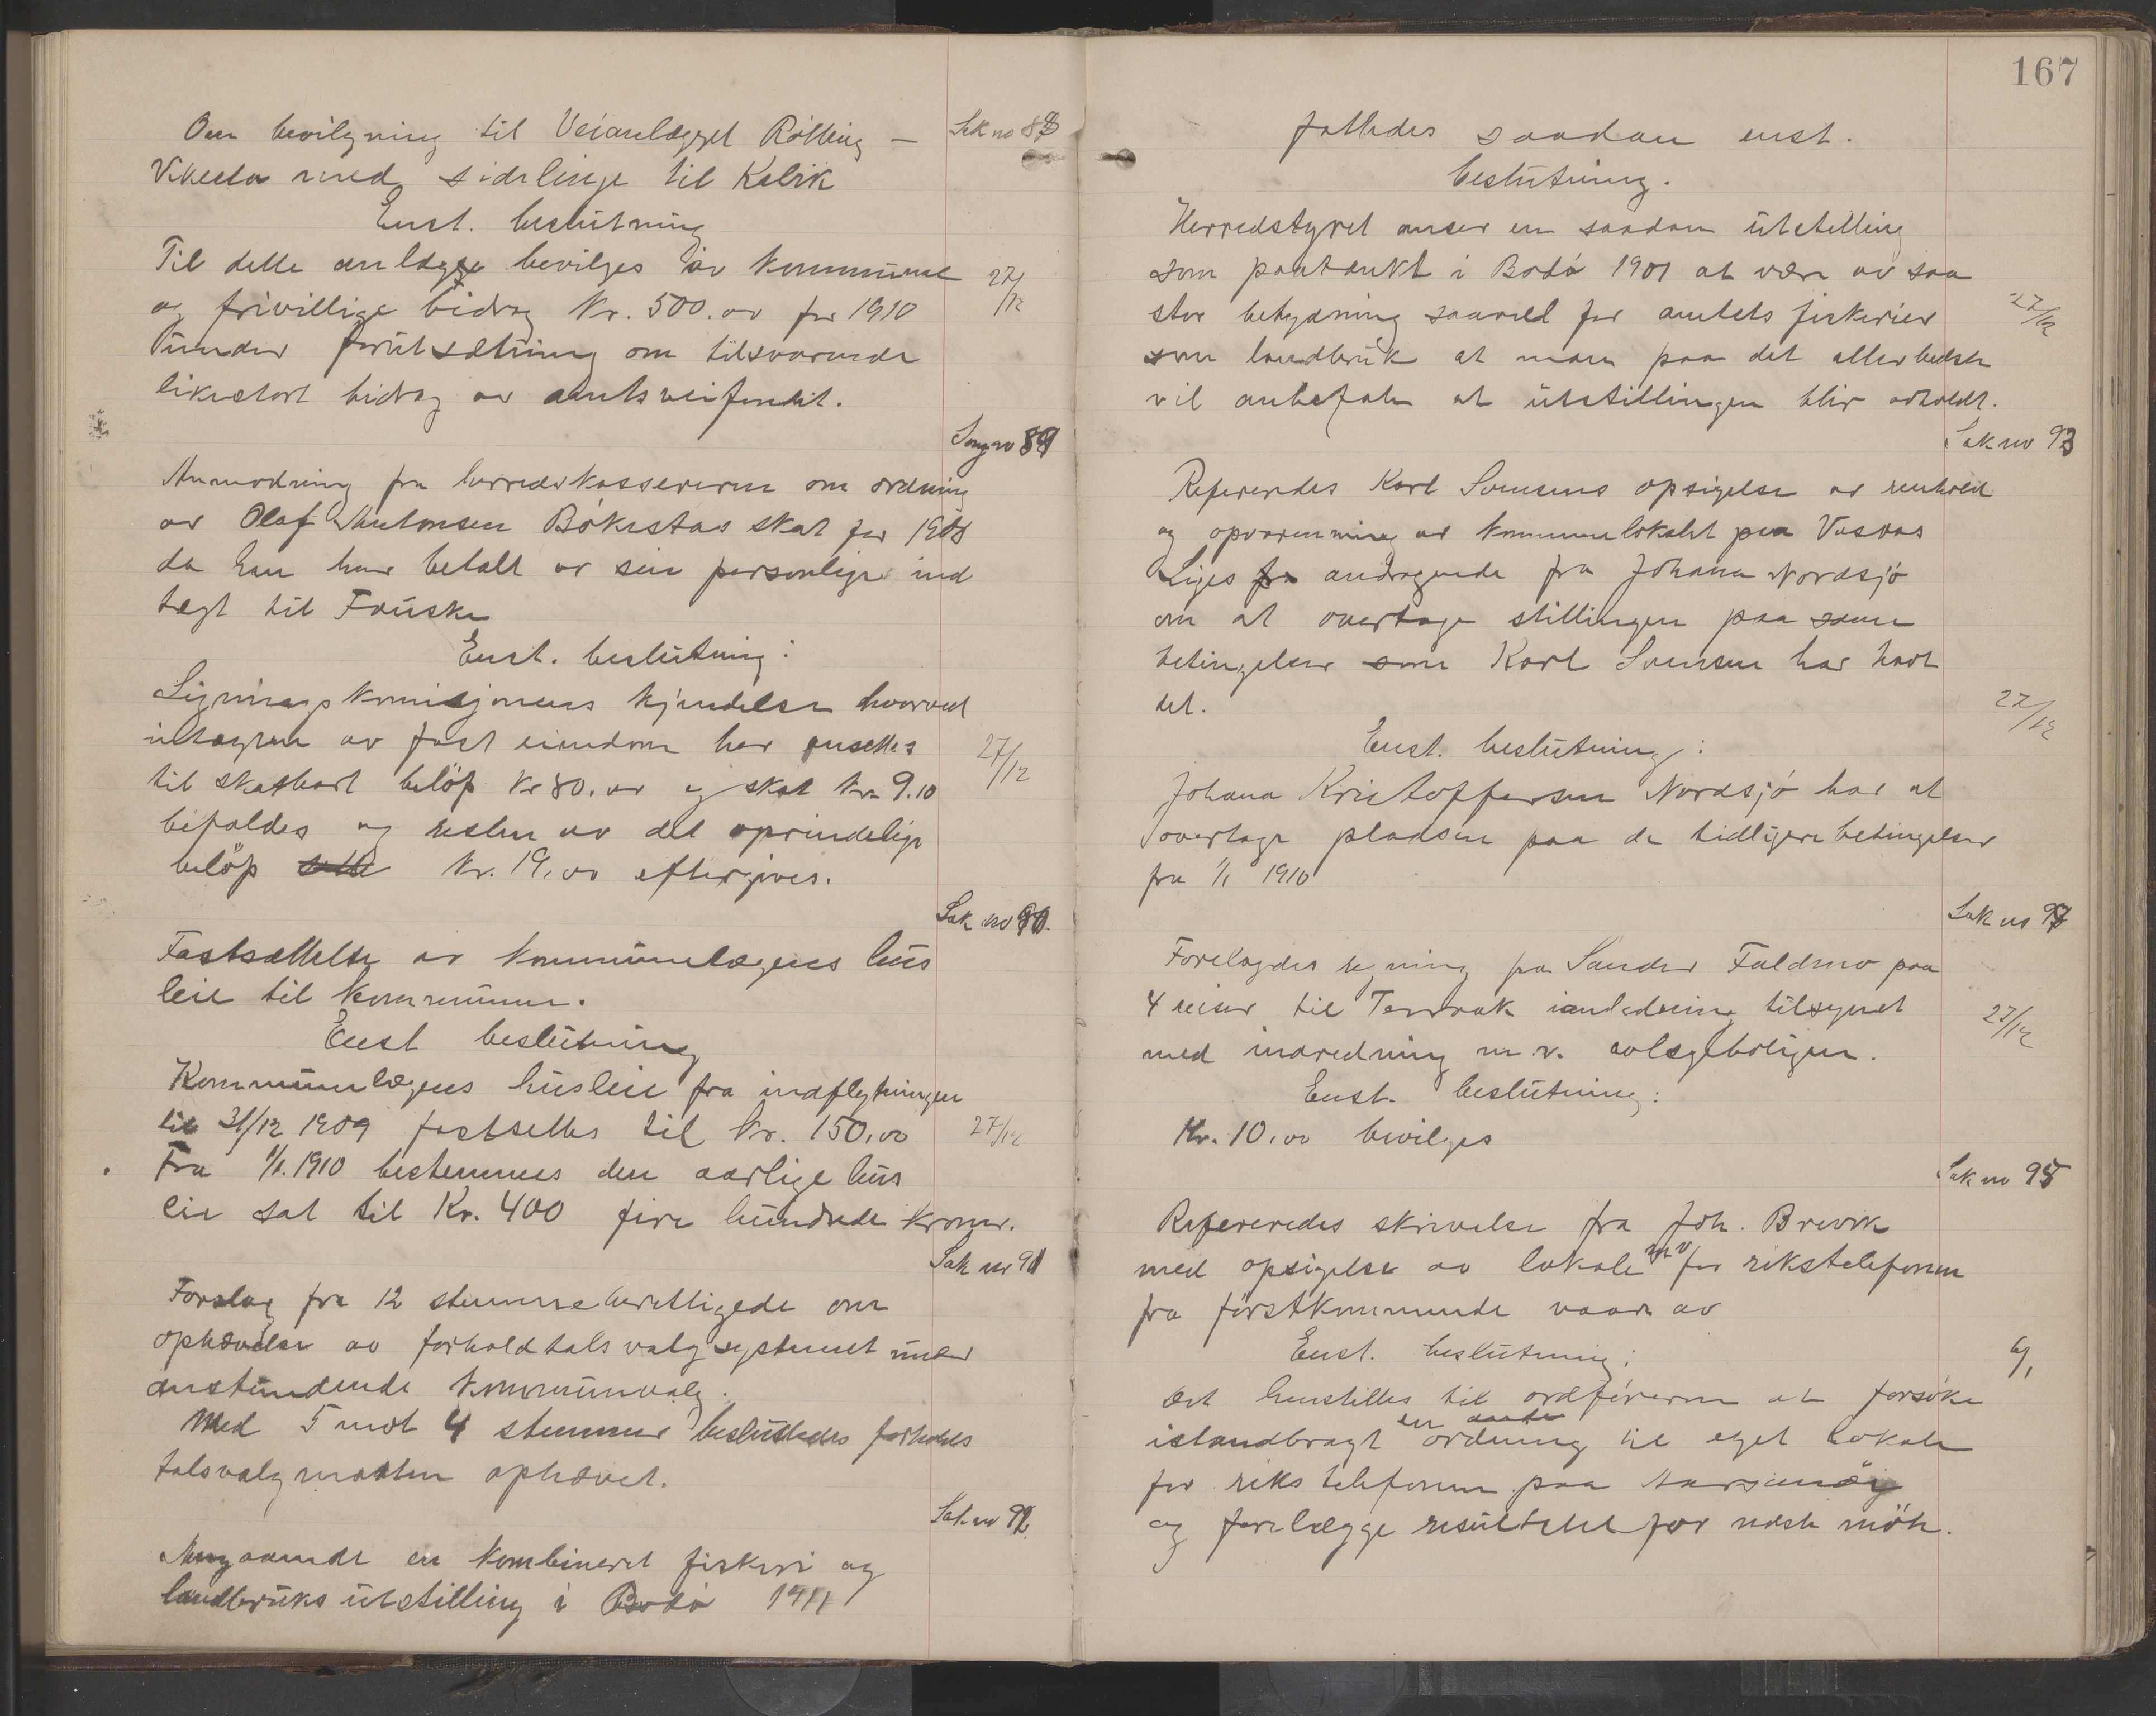 Sak no 88
Om bevilgning til Veianlægget Rölling –
Vikesta med sidelinje til Kalvik
Enst. beslutning
Til dette anlægge bevilges av kommune
27/12
og frivillige bidrag Kr. 500.00 for 1910
under forutsætning om tilsvarende
likestort bidrag av amtsveifondet.
Sag no 89
Anmodning fra herredskassereren om ordning
av Olaf Antonsen Bökestas skat for 1908
da han har betalt av sin personlige ind
tægt til Fauske
Enst. beslutning:
Ligningskomisjonens kjendelse hvorved
indtægten av fast eiendom her ansettes
27/12
til skatbart belöp Kr 80.00 og skat Kr. 9.10
bifaldes og resten av det oprindelige
belöp Kr. 19,00 eftergives.
Sak no 90.
Fastsættelse av kommunelægens hus
leie til kommunen.
Enst beslutning
Kommunelægens husleie fra indflytningen
til 31/12 1909 fastsettes til Kr. 150,00
27/12
Fra 1/1. 1910 bestemmes den aarlige hus
leie sat til Kr. 400 fire hundrede kroner.
Sak no 91
Forslag fra 12 stemmeberettigede om
ophævelse av forholdtalsvalgsystemet under
anstundende kommunevalg.
Med 5 mot 4 stemmer besluttedes forholds
talsvalgmaaten ophævet.
Sak no 92.
Angaaende en kombineret fiskeri og
landbruks utstilling i Bodö 1911
167
fattedes saadan enst.
beslutning.
Herredstyret anser en saadan utstilling
som paatænkt i Bodö 1901 at være av saa
stor betydning saavel for amtets fiskerier
27/12
som landbruk at man paa det allerbedste
vil anbefale at utstillingen blir avholdt.
Sak no 93
Refereredes Karl Svensens opsigelse av renhold
og opvarmning av kommunelokalet paa Vasvas
Liges fra andragende fra Johana Nordsjö
om at overtage stillingen paa same
betingelser som Karl Svensen har havt
det.
27/12
Enst. beslutning:
Johana Kristoffersen Nordsjö har at
overtage pladsen paa de tidligere betingelser
fra 1/1 1910
Sak no 94
Forelagdes regning fra Sander Faldmo paa
4 reiser til Tenvak i anledning tilsynet
27/12
med indredning m.v. av lægeboligen.
Enst. beslutning:
Kr. 10,00 bevilges
Sak no 95
Refereredes skrivelse fra Joh. Brevik
med opsigelse av lokale m v for rikstelefonen
fra förstkommende vaar av
Enst. beslutning:
6/1
Det henstilles til ordföreren at forsöke
istandbragt en ordning til eget lokale
for rikstelefonen paa
og forelægge resultatet for næste möte.